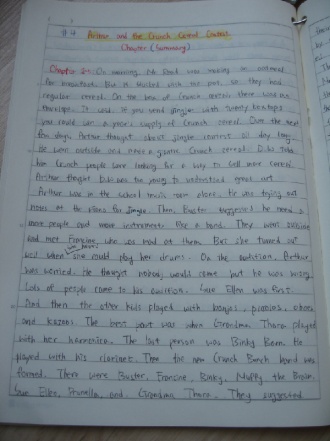 #4 Arthur and the Crunch Cereal Contest
Chapter (Summary)
Chapter 2: On morning, Mr. Read was making an oatmeal
for breakfast. But it with the pot, so they had
regular cereal. On the box of Crunch cereal there was an
envelope. It said, if you send jingles with twenty boxtops
you could win a year's supply of Crunch cereal. Over the next
few days, Arthur thought about jingle contest all day long.
He went outside and a giant Crunch cereal! D.W. told
him Crunch people were looking for a way to sell more cereal.
Arthur thought D.W. was too young to understand great art.
Arthur was in the school music room alone. He was trying out
notes at the piano for jingle. Then, Buster suggested he need a
more people and more instruments like a band. They went outside
and met Francine, who was mad at them. But she turned out
well when she could play her drums. On the audition, Arthur
was worried. He thought nobody would come but he was wrong.
Lots of people come to his audition. Sue Ellen was first.
And then the other kids played with banjos, pianos, oboes
and kazoos. The best part was when Grandma Thora played
with her harmonica. The last person was Binky Barn. He
played with his clarinet. Then the new Crunch Bunch band was
formed. There were Buster, Francine, Binky, Muffy the Brain,
Sue Ellen, Prunella, and Grandma Thora. They suggested